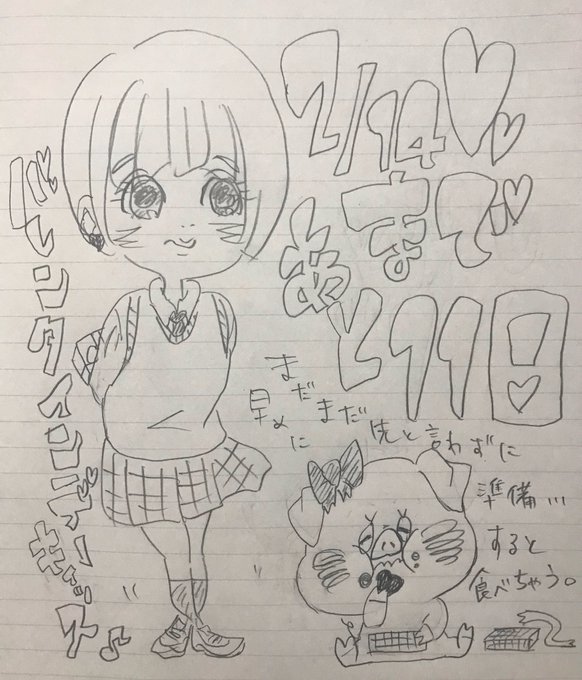 2/14♡
まで
あと11日
バレンタインデーキッス♪
まだまだ先と言わずに
早めに
準備…
すると
食べちゃう。